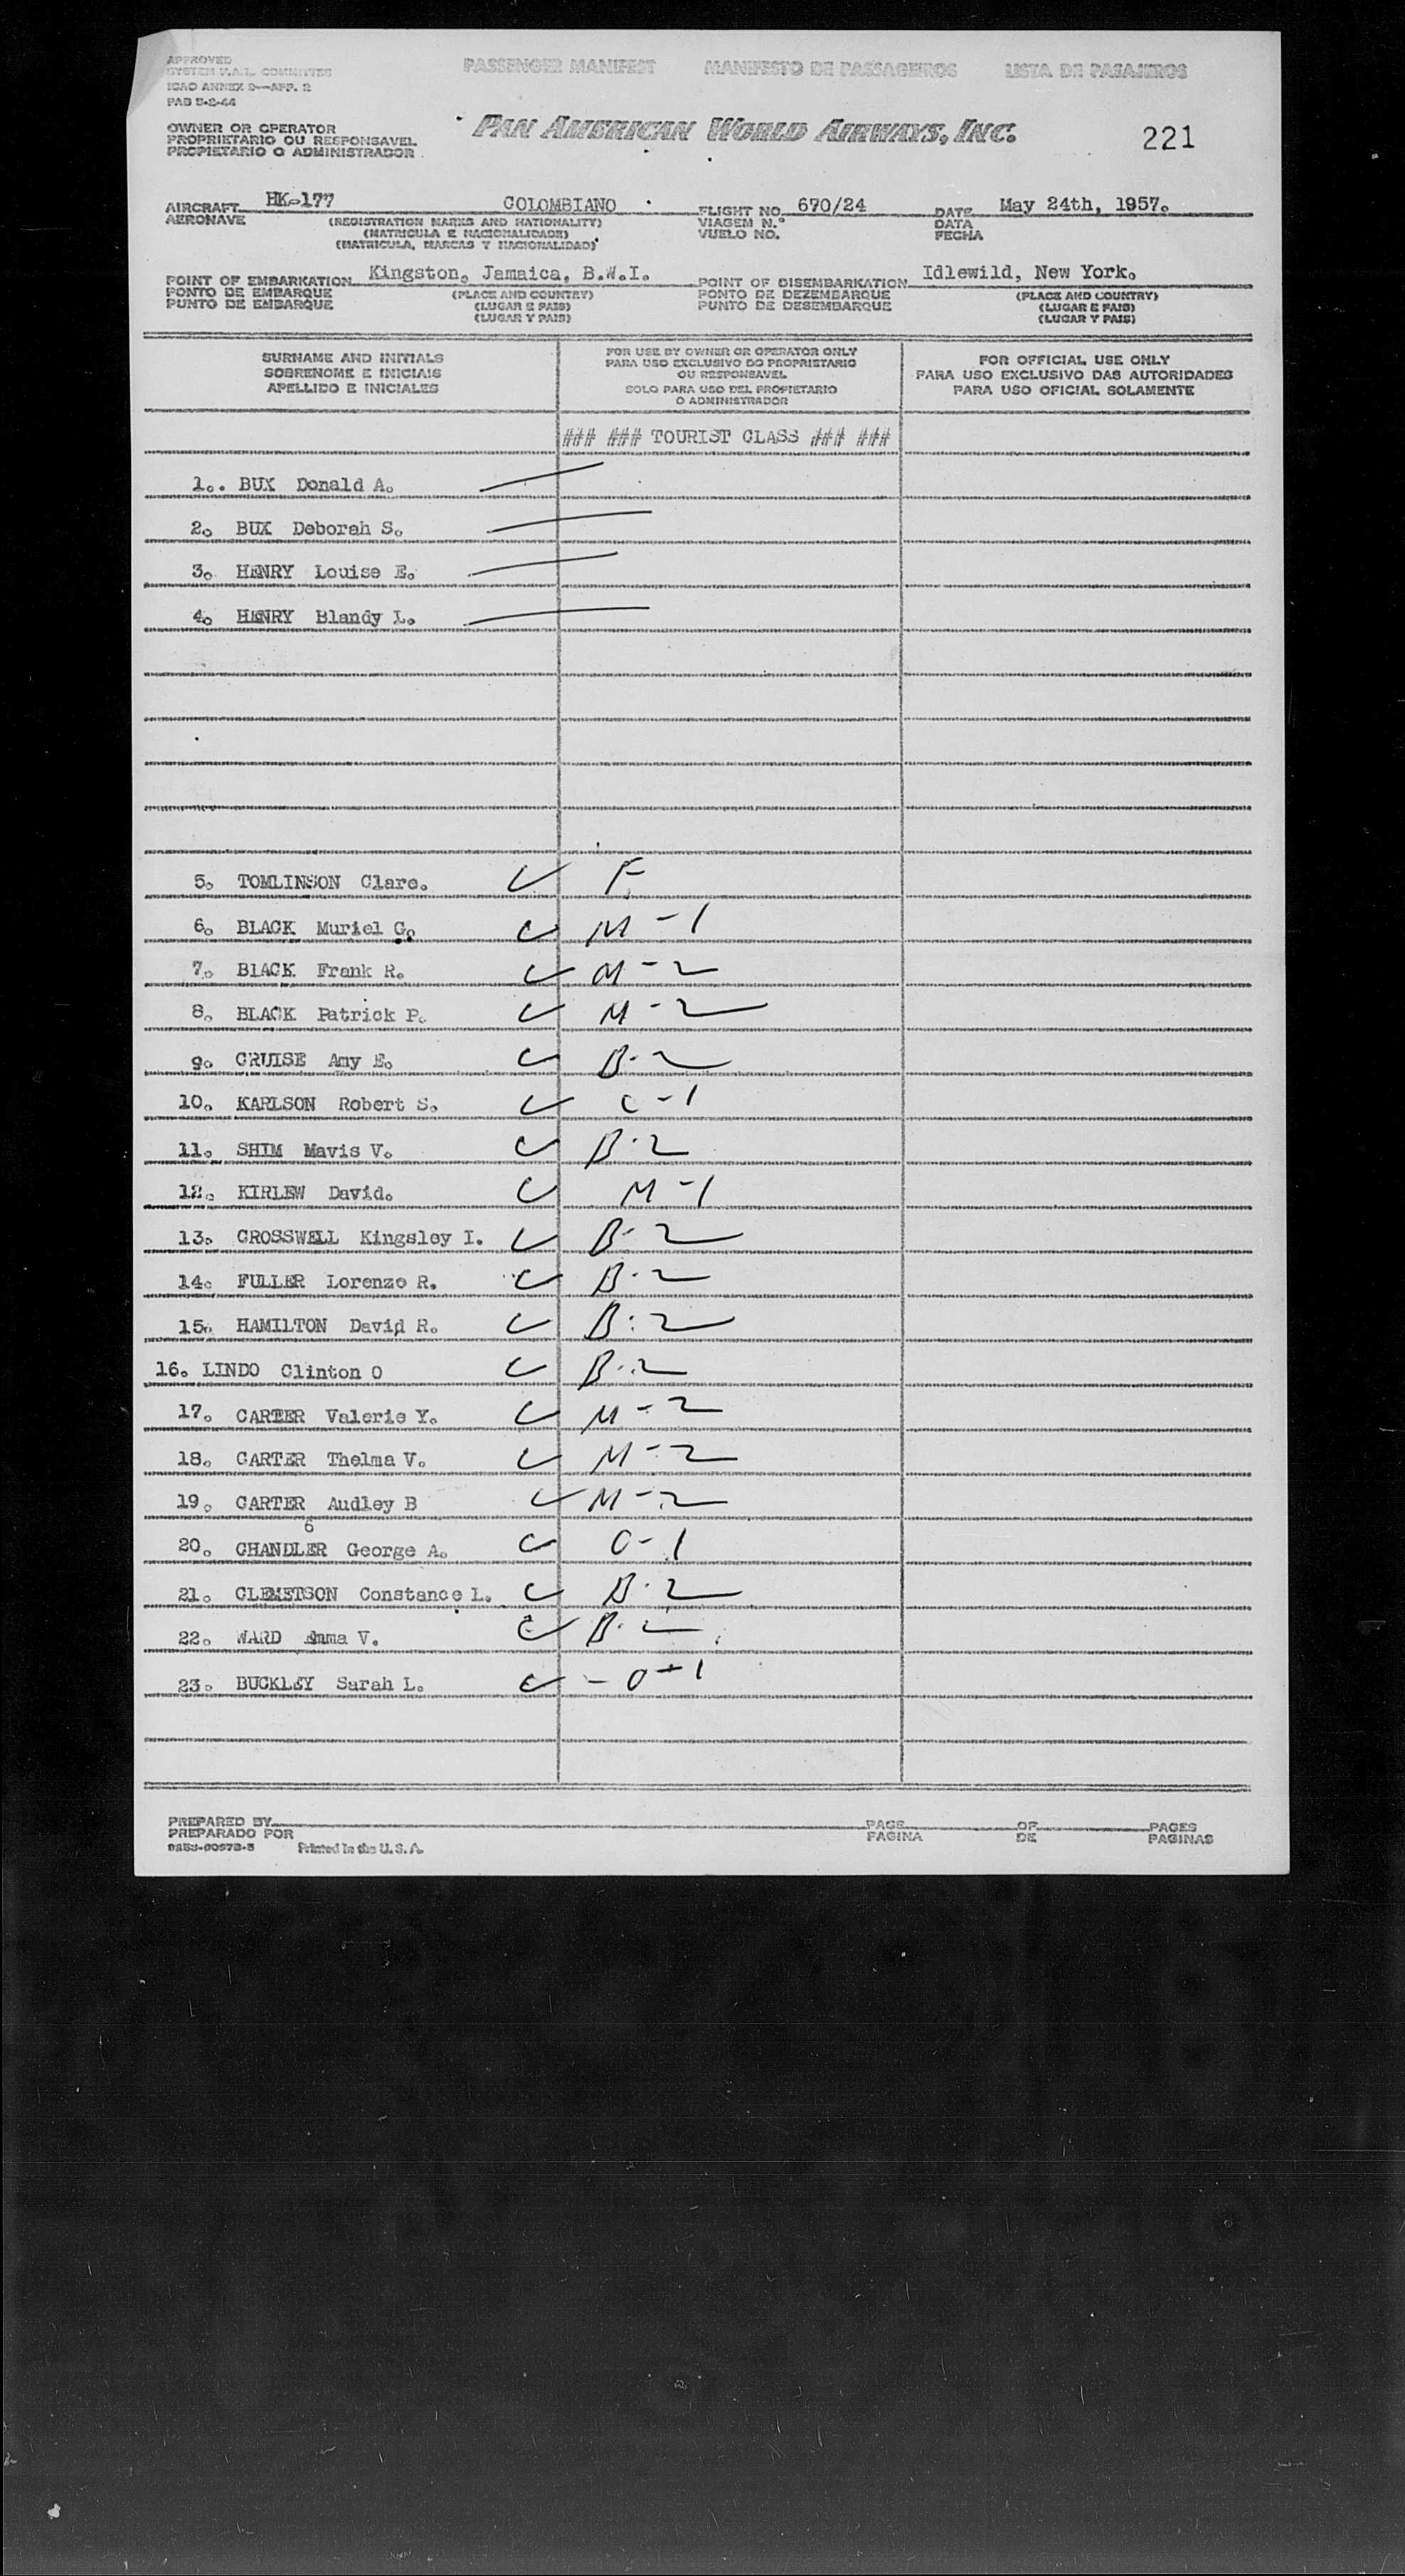 APPROVED
SYSTEM F.A.L. COMMITTEE
ICAO ANNEX 9—APP. 2
PAD 5-2-44
PASSENGER MANIFEST MANIFESTO DE PASSAGEIROS LISTA DE PASAJEROS
OWNER OR OPERATOR
PROPRIETARIO OU RESPONSAVEL
PROPIETARIO O ADMINISTRADOR
PAN AMERICAN WORLD AIRWAYS, INC.
221
AIRCRAFT HK-177 COLOMBIANO FLIGHT NO. 670/24 DATE May 24th, 1957.
AERONAVE (REGISTRATION MARKS AND NATIONALITY) VIAGEM N.º DATA
(MATRICULA E NACIONALIDADE) VUELO NO. FECHA
(MATRICULA, MARCAS Y NACIONALIDAD)
POINT OF EMBARKATION Kingston, Jamaica, B.W.I. POINT OF DISEMBARKATION Idlewild, New York.
PONTO DE EMBARQUE (PLACE AND COUNTRY) PONTO DE DEZEMBARQUE (PLACE AND COUNTRY)
PUNTO DE EMBARQUE (LUGAR E PAIS) PUNTO DE DESEMBARQUE (LUGAR E PAIS)
(LUGAR Y PAIS) (LUGAR Y PAIS)
SURNAME AND INITIALS
SOBRENOME E INICIAIS
APELLIDO E INICIALES
FOR USE BY OWNER OR OPERATOR ONLY
PARA USO EXCLUSIVO DO PROPRIETARIO
OU RESPONSAVEL
SOLO PARA USO DEL PROPIETARIO
O ADMINISTRADOR
FOR OFFICIAL USE ONLY
PARA USO EXCLUSIVO DAS AUTORIDADES
PARA USO OFICIAL SOLAMENTE
### ### TOURIST CLASS ### ###
1.. BUX Donald A.
2. BUX Deborah S.
3. HENRY Louise E.
4. HENRY Blandy L.
5. TOMLINSON Clare. F
6. BLACK Muriel G. M-1
7. BLACK Frank R. M-2
8. BLACK Patrick P. M-2
9. CRUISE Amy E. B-2
10. KARLSON Robert S. C-1
11. SHIM Mavis V. B-2
12. KIRLEW David. M-1
13. CROSSWELL Kingsley I. B-2
14. FULLER Lorenzo R. B-2
15. HAMILTON David R. B-2
16. LINDO Clinton O B-2
17. CARTER Valerie Y. M-2
18. CARTER Thelma V. M-2
19. CARTER Audley B M-2
6
20. CHANDLER George A. O-1
21. CLEMETSON Constance L. B-2
22. WARD Emma V. B-2
23. BUCKLEY Sarah L. -O-1
PREPARED BY PAGE OF PAGES
PREPARADO POR PAGINA DE PAGINAS
Printed in the U.S.A.